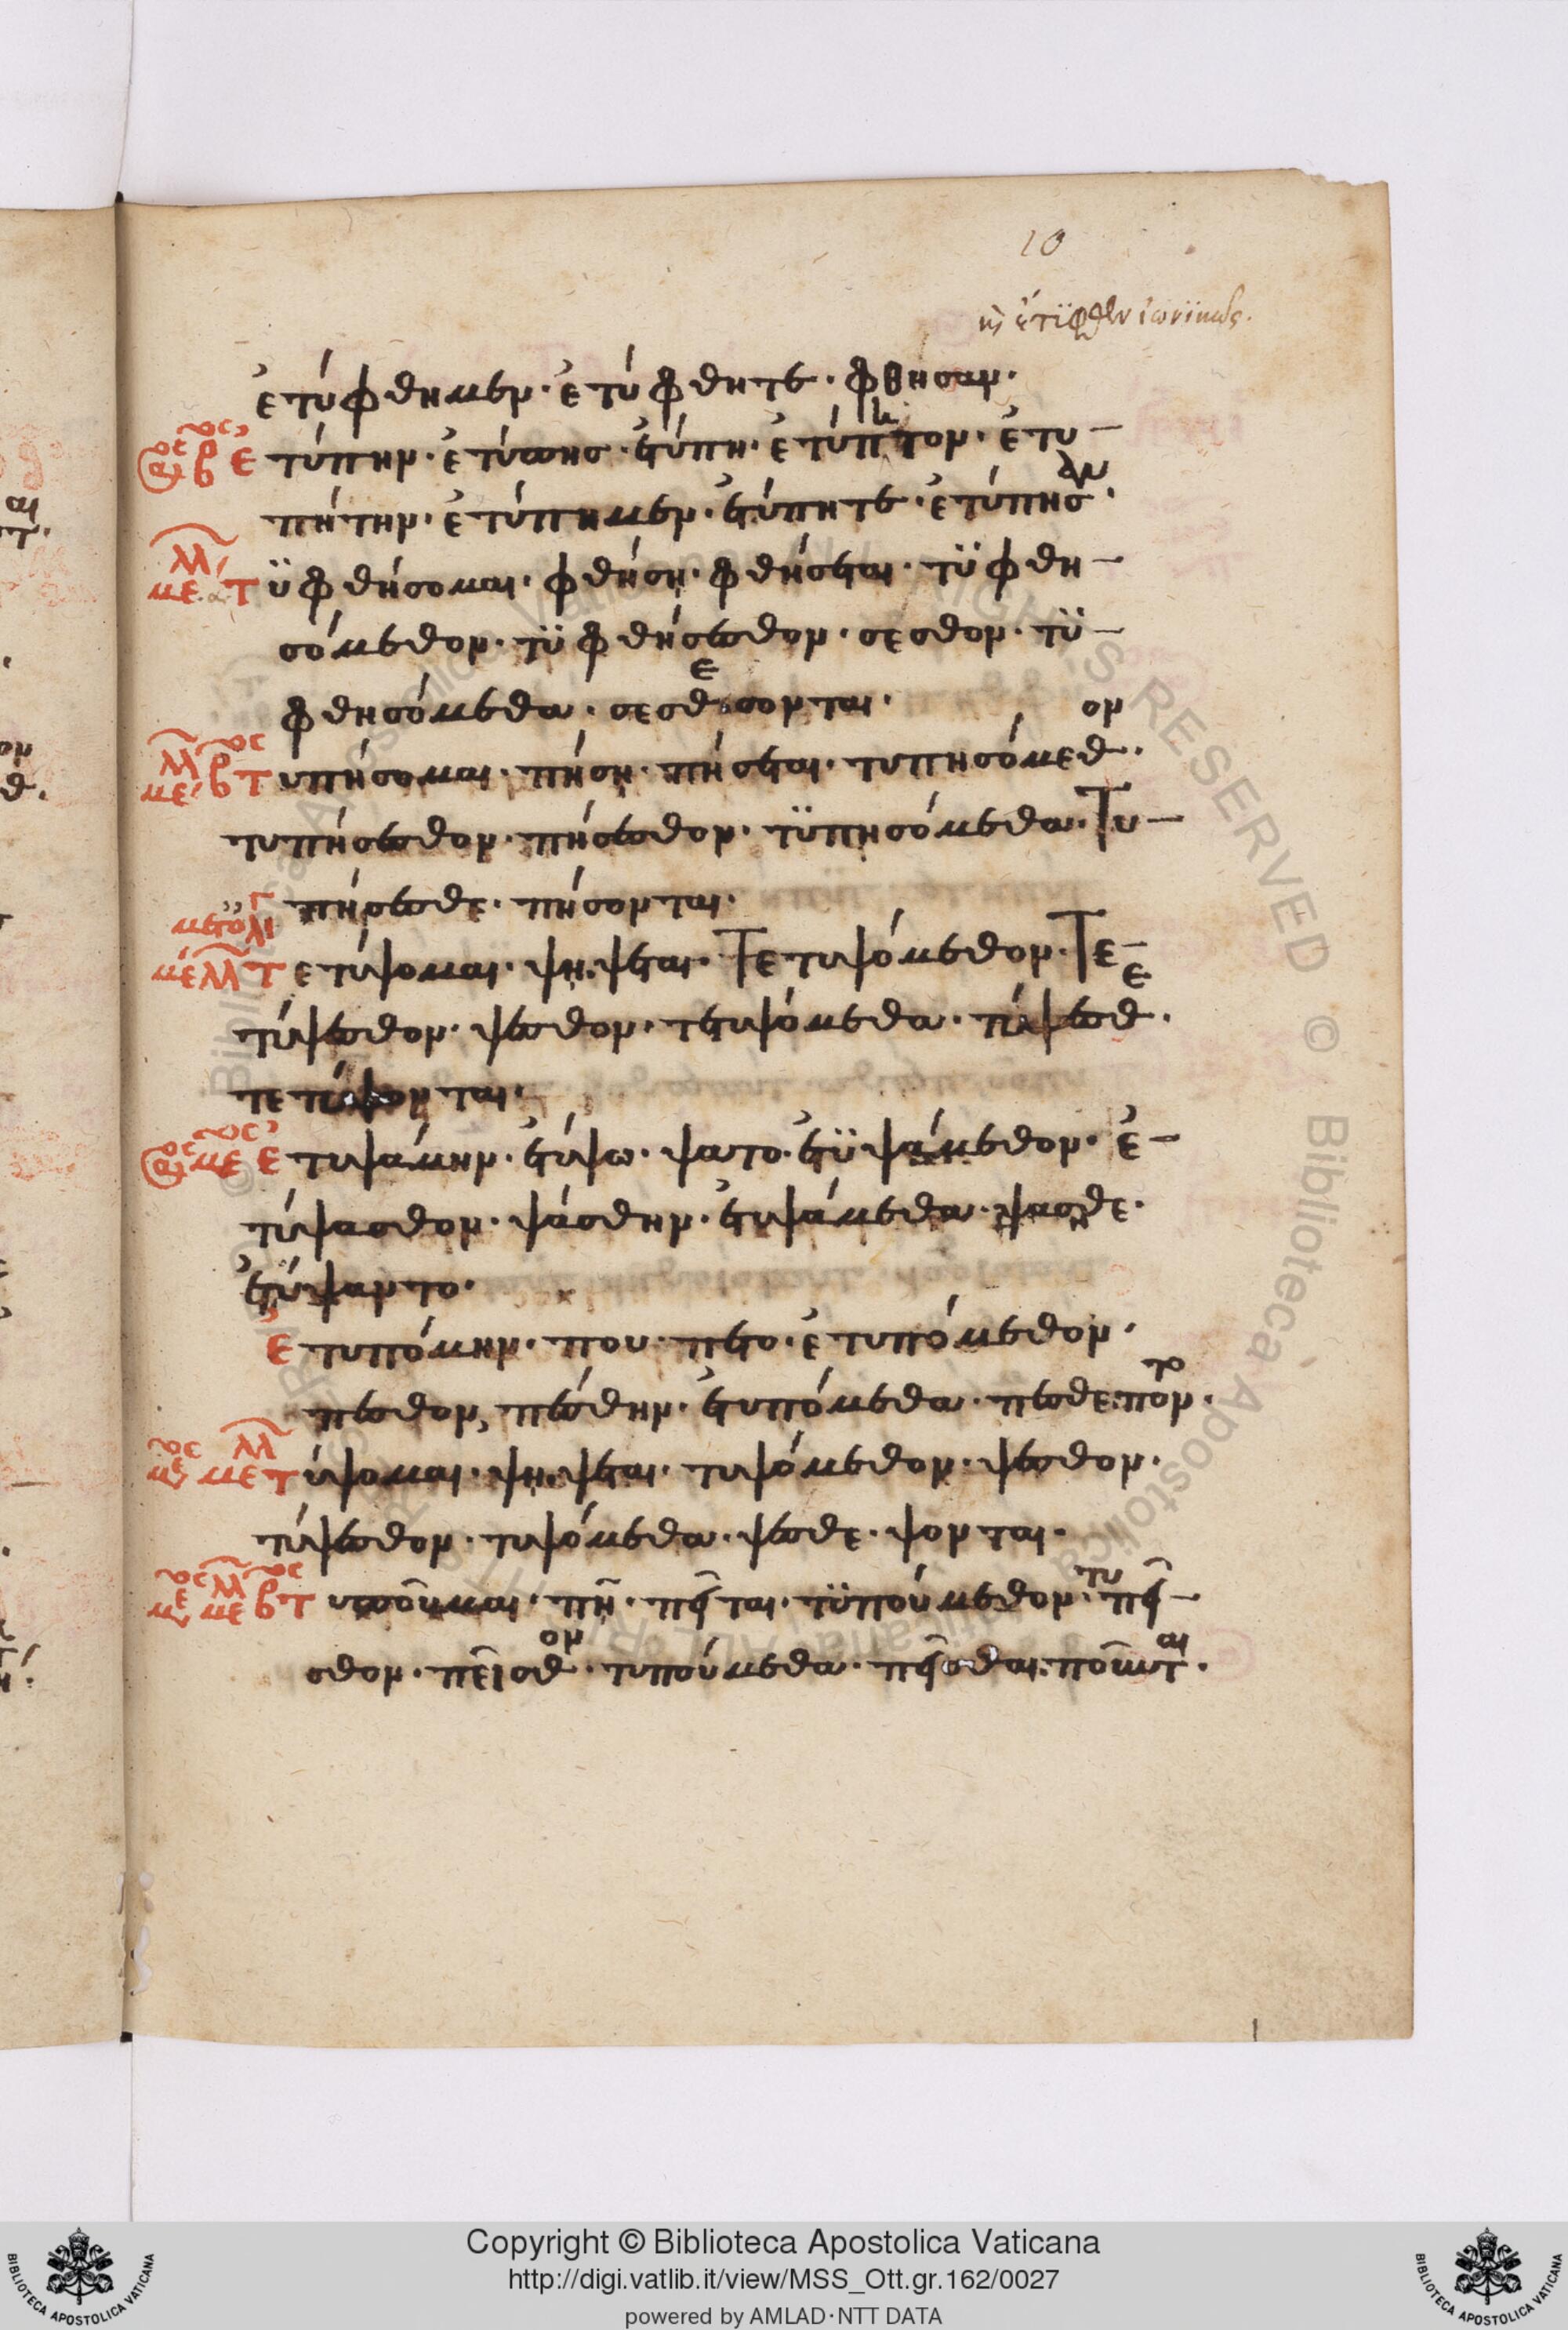 10
κ(αὶ) ἔτϋφθεν ἰωνϊκῶς.
ἐτύφθημεν· ἐτύφθητε· φθησαν·
ἀόρ β ἐτύπην· ἐτύπης· ἐτύπη· ἐτύπητον· ἐτυ-
πήτην· ἐτύπημεν· ἐτύπητε· ἐτύπησαν·
μέλλ τϋφθήσομαι· φθήση· φθήσεται· τϋφθη-
σόμεθον· τϋφθήσεσθον· σεσθον· τϋ-
φθησόμεθα· σεσθε σονται·
μέλλ β τυπήσομαι· πήση· πήσεται· τυπησόμεθον·
τυπήσεσθον· πήσεσθον· τϋπησόμεθα· Τυ-
πήσεσθε· πήσονται·
μετ ὀλί
μέλλ τετύψομαι· ψη· ψεται· Τετυψόμεθον· Τε-
τύψεσθον· ψεσθον· τετυψόμεθα· τύψεσθε·
τετύψονται·
ἀόρ με ἐτυψάμην· ἐτύψω· ψατο· ἐτϋψάμεθον· ἐ-
τύψασθον· ψάσθην· ἐτυψάμεθα· ψασθε·
ἐτύψαντο·
ἐτυπόμην· που· πετο· ἐτυπόμεθον·
πεσθον, πέσθην· ἐτυπόμεθα· πεσθε· ποντο·
μέσ μέλλ τύψομαι· ψη· ψεται· τυψόμεθον· ψεσθον·
τύψεσθον· τυψόμεθα· ψεσθε· ψονται·
μέσ μέλλ β τυποῦμαι· πῆ· πεῖται· τϋπούμεθον· τυπεῖ-
σθον· πεῖσθον· τυπούμεθα· πεῖσθαι· ποῦνται·
Copyright © Biblioteca Apostolica Vaticana
http://digi.vatlib.it/view/MSS_Ott.gr.162/0027
powered by AMLAD·NTT DATA